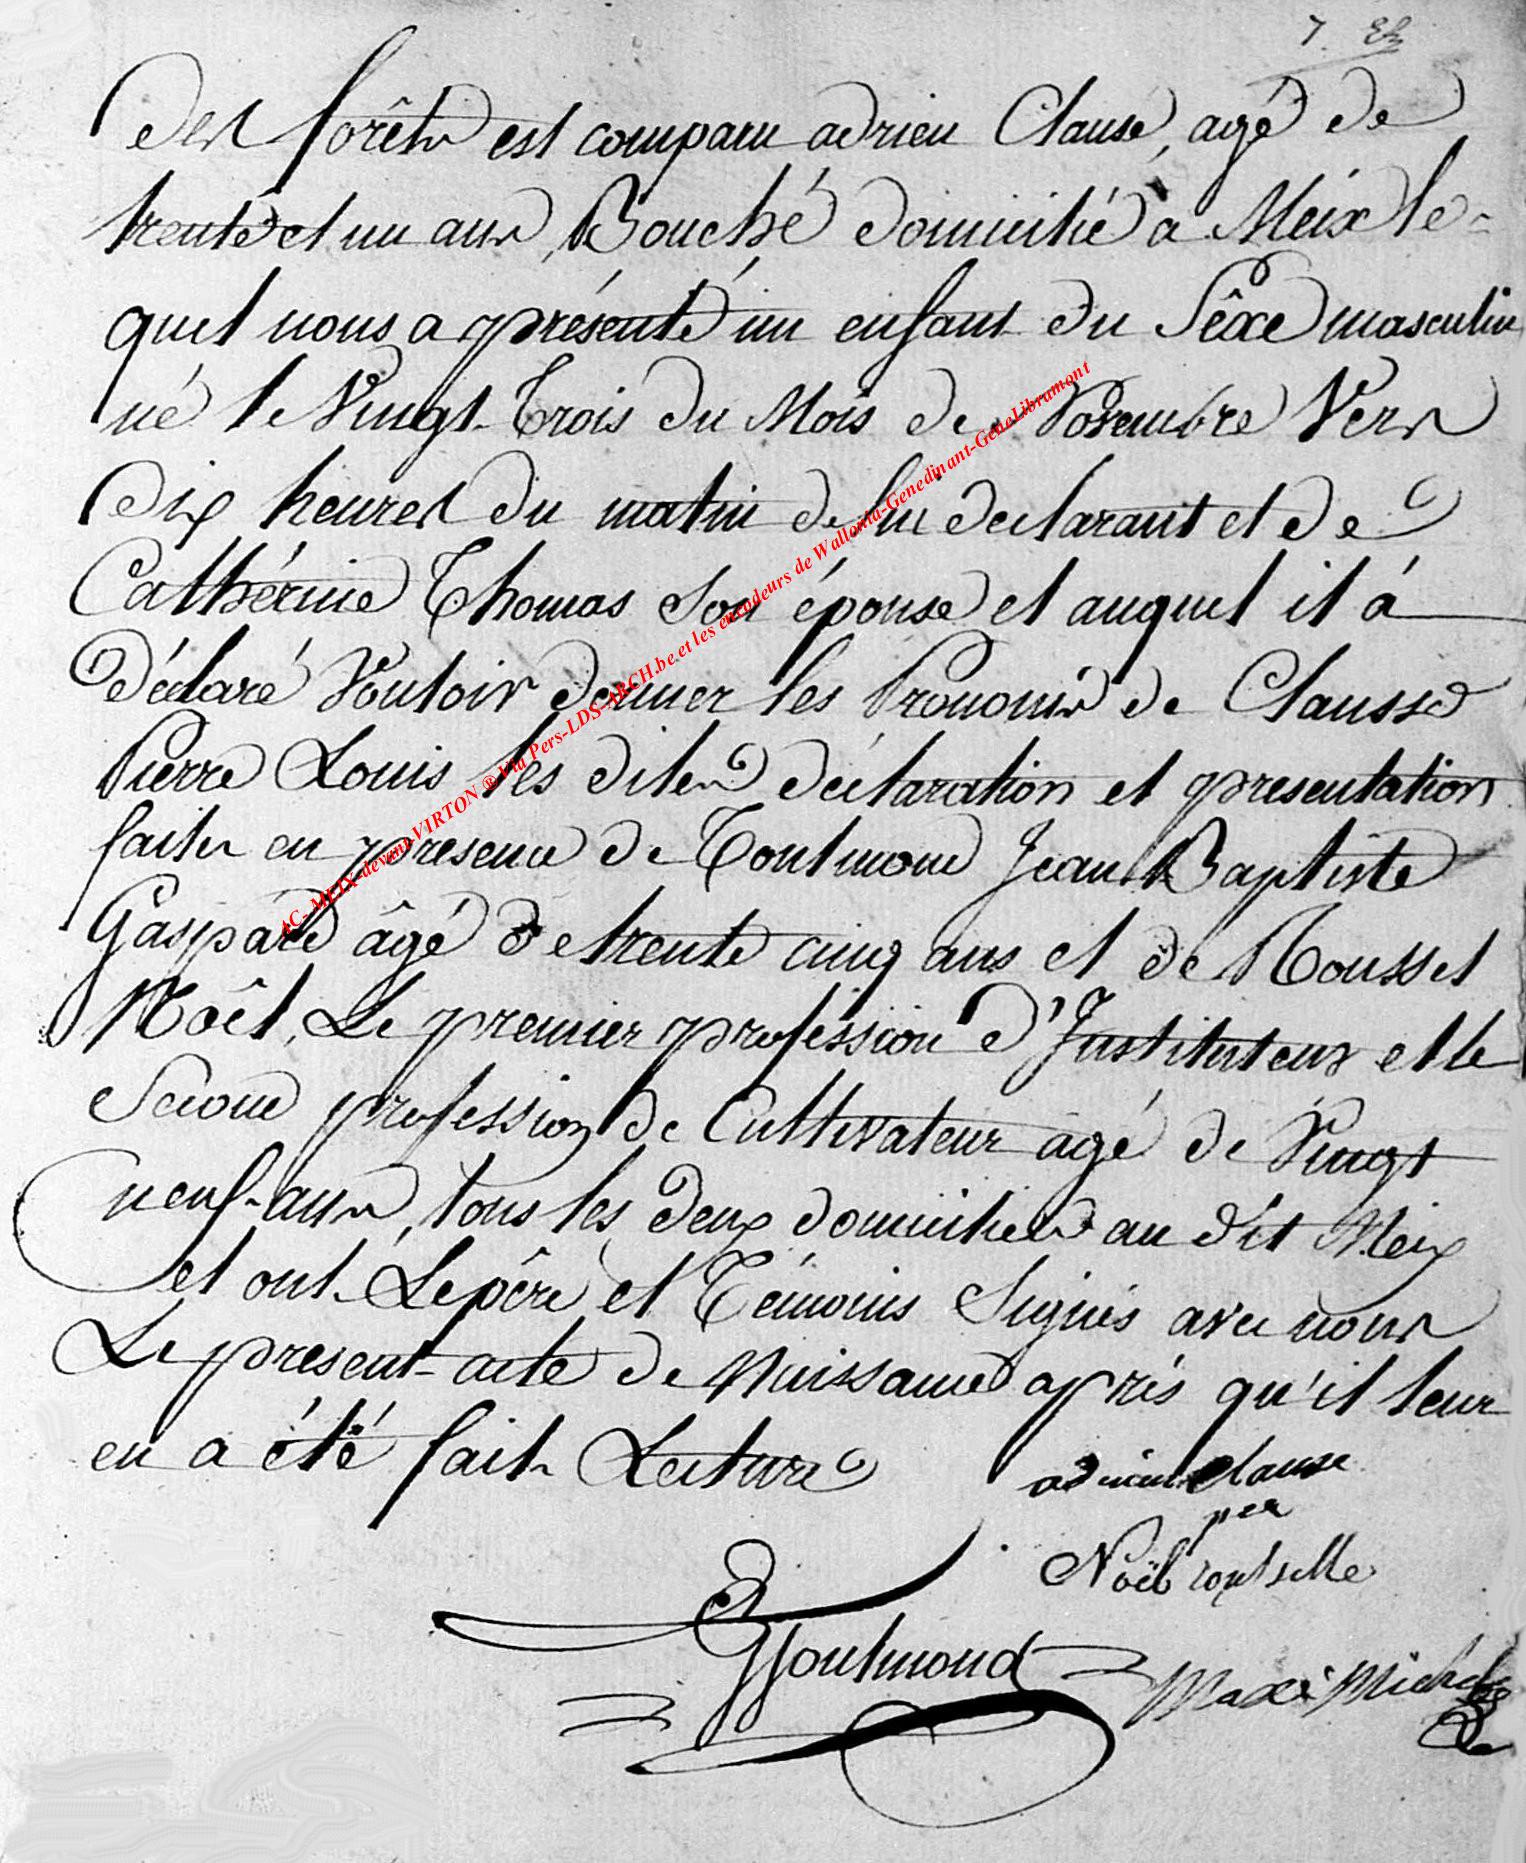 7.
des forêts est comparu adrien Clause, agé de
trente et un ans, Bouché domicilié a Meix le=
quel nous a présenté un enfant du Sêxe masculin
né le Vingt-Trois du Mois de Novembre Vers
dix heures du matin de lui declarant et de
Cathérine Thomas Son épouse et auquel il á
déclaré Vouloir donner les Pronoms de Clausse
Pierre Louis les dites déclaration et presentation
faites en presence de Toutmond Jean Baptiste
Gaspard âgé de trente cinq ans et de Rousset
Noêl, Le premier profession d'Instituteur et le
Second profession de Cultivateur agé de Vingt
neuf-ans, tous les deux domiciliés au dit Meix
et ont Le pére et Témoins Signés avec nous
Le present acte de Naissance aprés qu'il leur
en a été fait Lecture
adrien Clause
per
Noël rousselle
Toutmond
Maxe Michel
AC- MEIX-devant-VIRTON ® Via Pers-LDS-ARCH.be et les encodeurs de Wallonia-Genedinant-GeneLibramont